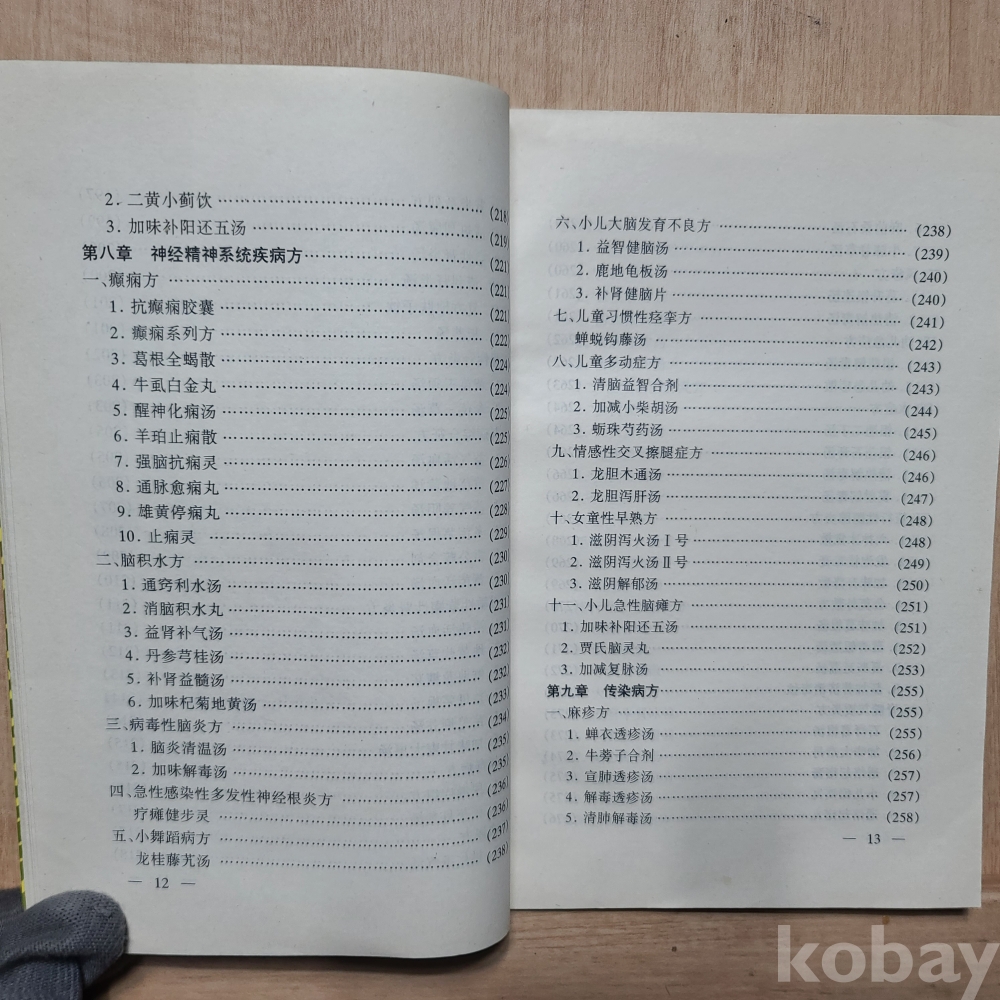 2. 二黄小蓟饮……(218
3. 加味补阳还五汤……(219
第八章 神经精神系统疾病方……(221)
一、癫痫方……(221)
1. 抗癫痫胶囊……(221
2. 癫痫系列方……(222
3. 葛根全蝎散……(224
4. 牛虱白金丸……(224
5. 醒神化痫汤……(225
6. 羊珀止痫散……(225
7. 强脑抗痫灵……(226
8. 通脉愈痫丸……(227
9. 雄黄停痫丸……(228
10. 止痫灵……(229
二、脑积水方……(230
1. 通窍利水汤……(230
2. 消脑积水丸……(231
3. 益肾补气汤……(231
4. 丹参芎桂汤……(232
5. 补肾益髓汤……(232
6. 加味杞菊地黄汤……(233
三、病毒性脑炎方……(234
1. 脑炎清温汤……(235
2. 加味解毒汤……(235
四、急性感染性多发性神经根炎方……(236
疗瘫健步灵……(236
五、小舞蹈病方……(237
龙桂藤艽汤……(238
— 12 —
六、小儿大脑发育不良方……(238)
1. 益智健脑汤……(239)
2. 鹿地龟板汤……(240)
3. 补肾健脑片……(240)
七、儿童习惯性痉挛方……(241)
蝉蜕钩藤汤……(242)
八、儿童多动症方……(243)
1. 清脑益智合剂……(243)
2. 加减小柴胡汤……(244)
3. 蛎珠芍药汤……(245)
九、情感性交叉擦腿症方……(246)
1. 龙胆木通汤……(246)
2. 龙胆泻肝汤……(247)
十、女童性早熟方……(248)
1. 滋阴泻火汤Ⅰ号……(248)
2. 滋阴泻火汤Ⅱ号……(249)
3. 滋阴解郁汤……(250)
十一、小儿急性脑瘫方……(251)
1. 加味补阳还五汤……(251)
2. 贾氏脑灵丸……(252)
3. 加减复脉汤……(253)
第九章 传染病方……(255)
一、麻疹方……(255)
1. 蝉衣透疹汤……(255)
2. 牛蒡子合剂……(256)
3. 宣肺透疹汤……(257)
4. 解毒透疹汤……(257)
5. 清肺解毒汤……(258)
— 13 —
kobay